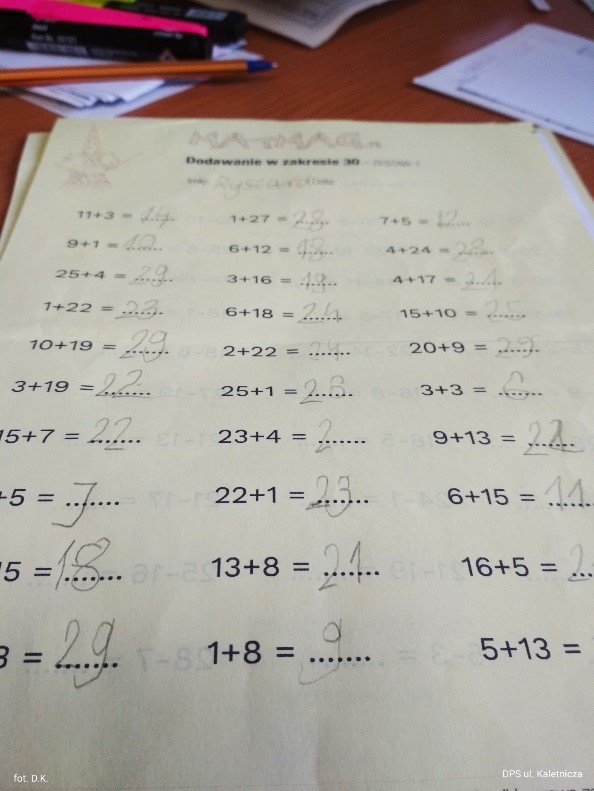 MATMAG.PL
Dodawanie w zakresie 30 - ZESTAW 2
Imię: Ryszard Data:
11+3 = 14 1+27 = 28 7+5 = 12
9+1 = 10 6+12 = 18 4+24 = 28
25+4 = 29 3+16 = 19 4+17 = 21
1+22 = 23 6+18 = 24 15+10 = 25
10+19 = 29 2+22 = 24 20+9 = 29
3+19 = 22 25+1 = 26 3+3 = 6
15+7 = 22 23+4 = 2 9+13 = 22
+5 = 7 22+1 = 23 6+15 = 11
5 = 18 13+8 = 21 16+5 = 2
= 29 1+8 = 9 5+13 =
fot. D.K. DPS ul. Kaletnicza